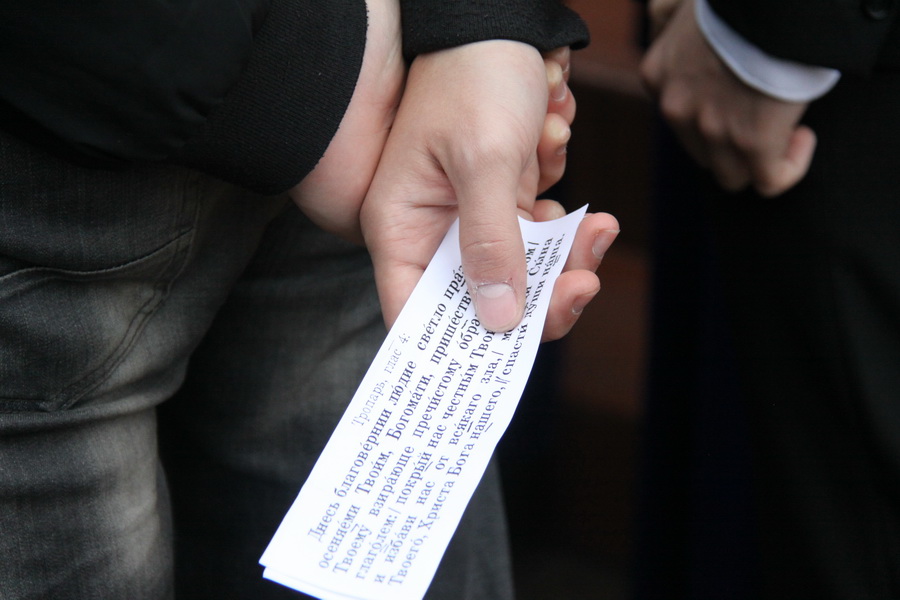 Тропарь, глас 4:
Днесь благове́рнии лю́дие све́тло пра́
осеняе́ми Твои́м, Богома́ти, прише́ств
Твоему́ взира́юще пречи́стому о́бра
глаго́лем:/ покры́й нас че́стным Тво
и изба́ви нас от вся́каго зла,/ Сы́на
Твоего́, Христа́ Бога на́шего,// спасти́ ду́ши на́ша.